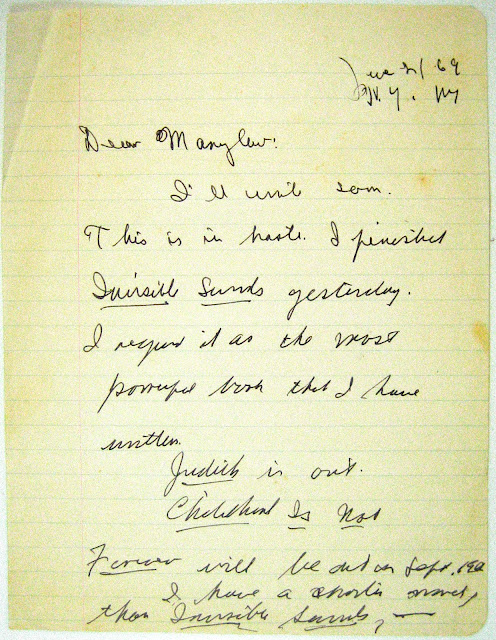 June 21/69
N.Y. NY
Dear Marylou:
I'll write soon.
This is in haste. I finished
Invisible Sands yesterday.
I regard it as the most
powerful book that I have
written.
Judith is out.
Childhood Is Not
Forever will be out on Sept. 19th
I have a shorter novel,
than Invisible Sands, —